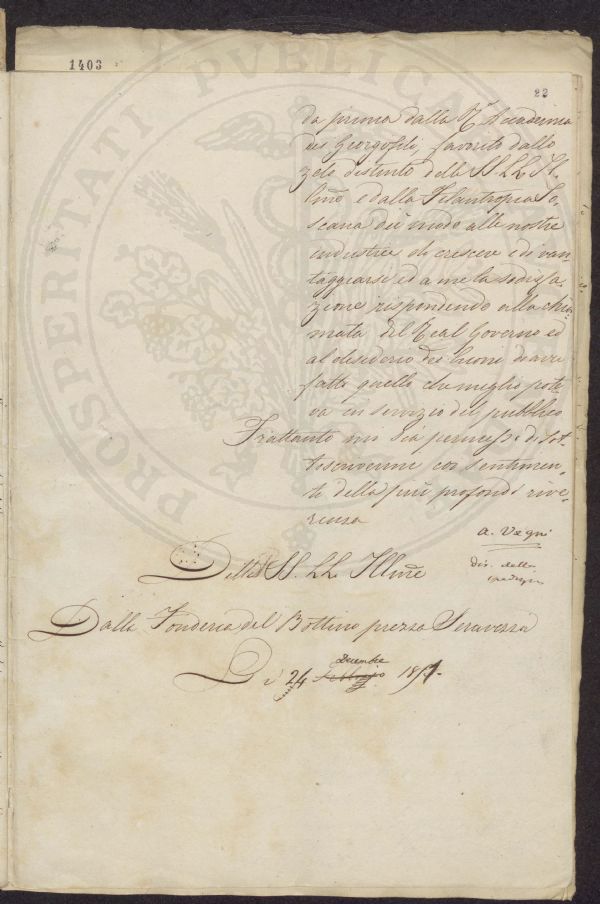 1403
22
da prima dalla R. Accademia
dei Georgofili, favorito dallo
zelo distinto delle SS. LL. Il-
lme e dalla Filantropia To-
scana dia modo alle nostre
industrie di crescere e di van-
taggiarsi ed a me la sodisfa-
zione rispondendo alla chia-
mata del Real Governo ed
al desiderio dei buoni di aver
fatto quello che meglio pote-
va in servizio del pubblico
Frattanto mi sia permesso di sot-
toscrivermi coi sentimen-
ti della più profonda rive-
renza
A. Vegni
dir. della
Delle SS. LL. Illme
Dalla Fonderia del Bottino presso Seravezza
Decembre
Di 24 Febbrajo 1851.
PROSPERITATI PUBLICAE